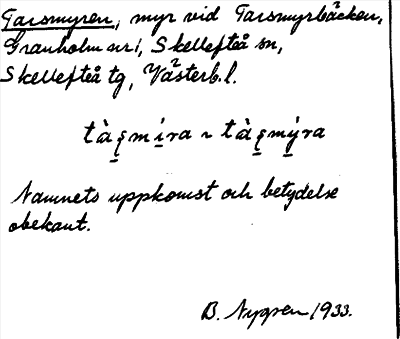 Tarsmyren, myr vid Tarsmyrbäcken,
Granholm nr 1, Skellefteå sn,
Skellefteå tg, Västerb. l.
Namnets uppkomst och betydelse
obekant.
B. Nygren 1933.